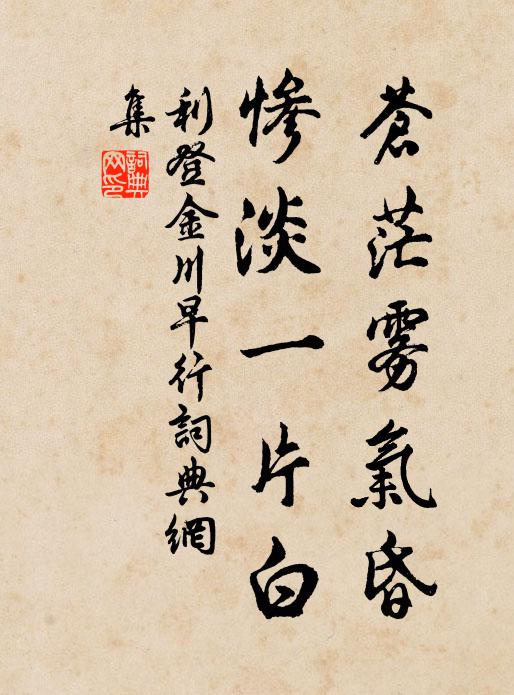 蒼茫雾氣昏
慘淡一片白
利登金川早行詞典網
集
詞典
网印